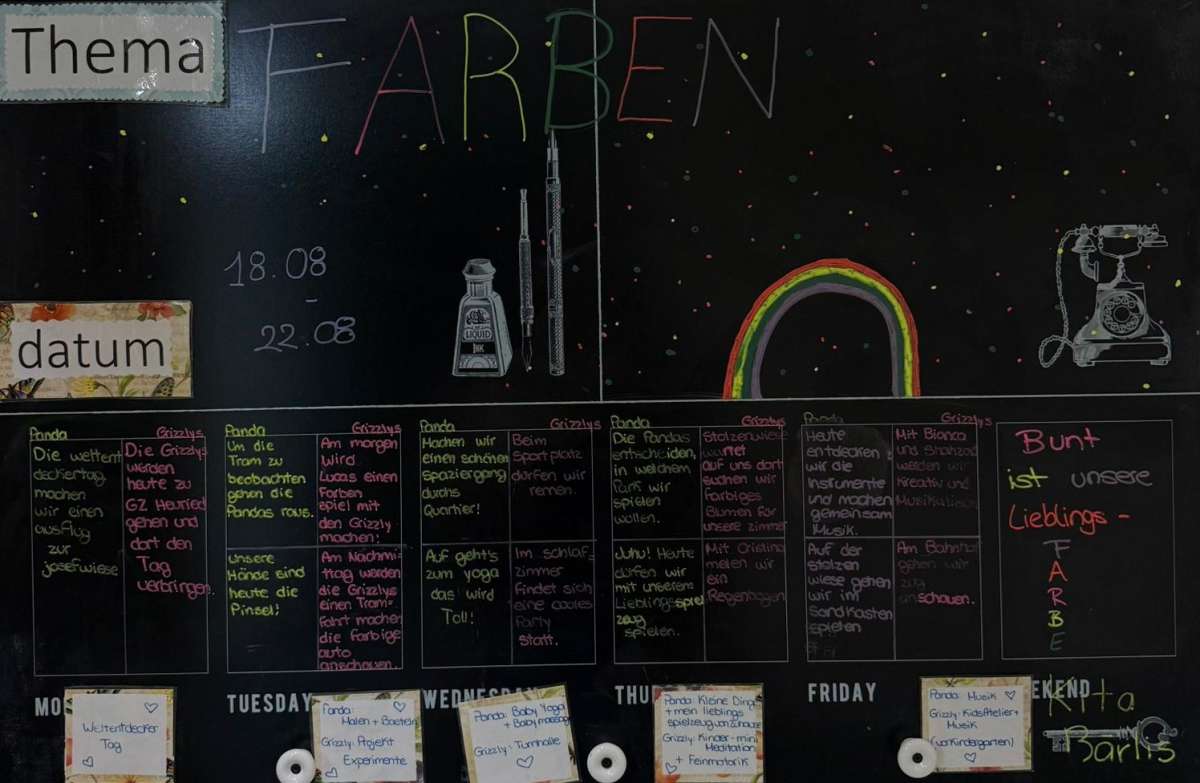 Thema
FARBEN
18.08
-
22.08
LIQUID
INK
datum
Panda
Die weltent
deckertag
machen
wir einen
ausflug
zur
josefwiese
Grizzlys
Die Grizzlys
werden
heute zu
GZ Heuried
gehen und
dort den
Tag
verbringen.
Panda
Um die
Tram zu
beobachten
gehen die
Pandas raus.
unsere
Hände sind
heute die
Pinsel!
Grizzlys
Am morgen
wird
Lucas einen
Farben
spiel mit
den Grizzly
machen!
Am Nachmi-
ttag werden
die Grizzlys
einen Tram-
fahrt machen
die Farbige
auto
anschauen.
Panda
Machen wir
einen schönen
spaziergang
durchs
Quartier!
Auf geht's
zum yoga
das wird
Toll!
Grizzlys
Beim
Sportplatz
dürfen wir
rennen.
Im schlaf-
zimmer
findet sich
eine cooles
Party
statt.
Panda
Die Pandas
entscheiden,
in welchem
Park wir
spielen
wollen.
Juhu! Heute
dürfen wir
mit unserem
Lieblingsspiel
zeug
spielen.
Grizzlys
Stolzenwiese
wartet
auf uns dort
suchen wir
farbiges
Blumen für
unsere zimmer
Mit Cristina
malen wir
ein
Regenbogen
Panda
Heute
entdecken
wir die
Instrumente
und machen
gemeinsam
Musik.
Auf der
stolzen
wiese gehen
wir im
Sandkasten
spielen
Grizzlys
Mit Bianca
und Shahzad
werden wir
Kreativ und
Musikalisch
Am Bahnhof
gehen wir
zug
anschauen.
Bunt
ist unsere
Lieblings-
F
A
R
B
E
MO
TUESDAY
WEDNESDAY
THU
FRIDAY
EKEND
Weltentdecker
Tag
Panda:
Malen + Basteln
Grizzly: Projekt
Experimente
Panda: Baby Yoga
+ Baby massage
Grizzly: Turnhalle
Panda: Kleine Dinge
+ mein lieblings
spielzeug von zuhause
Grizzly: Kinder-mini
Meditation
+ Feinmotorik
Panda: Musik
Grizzly: KidsAtelier+
Musik
(vorkindergarten)
Kita
Barlis